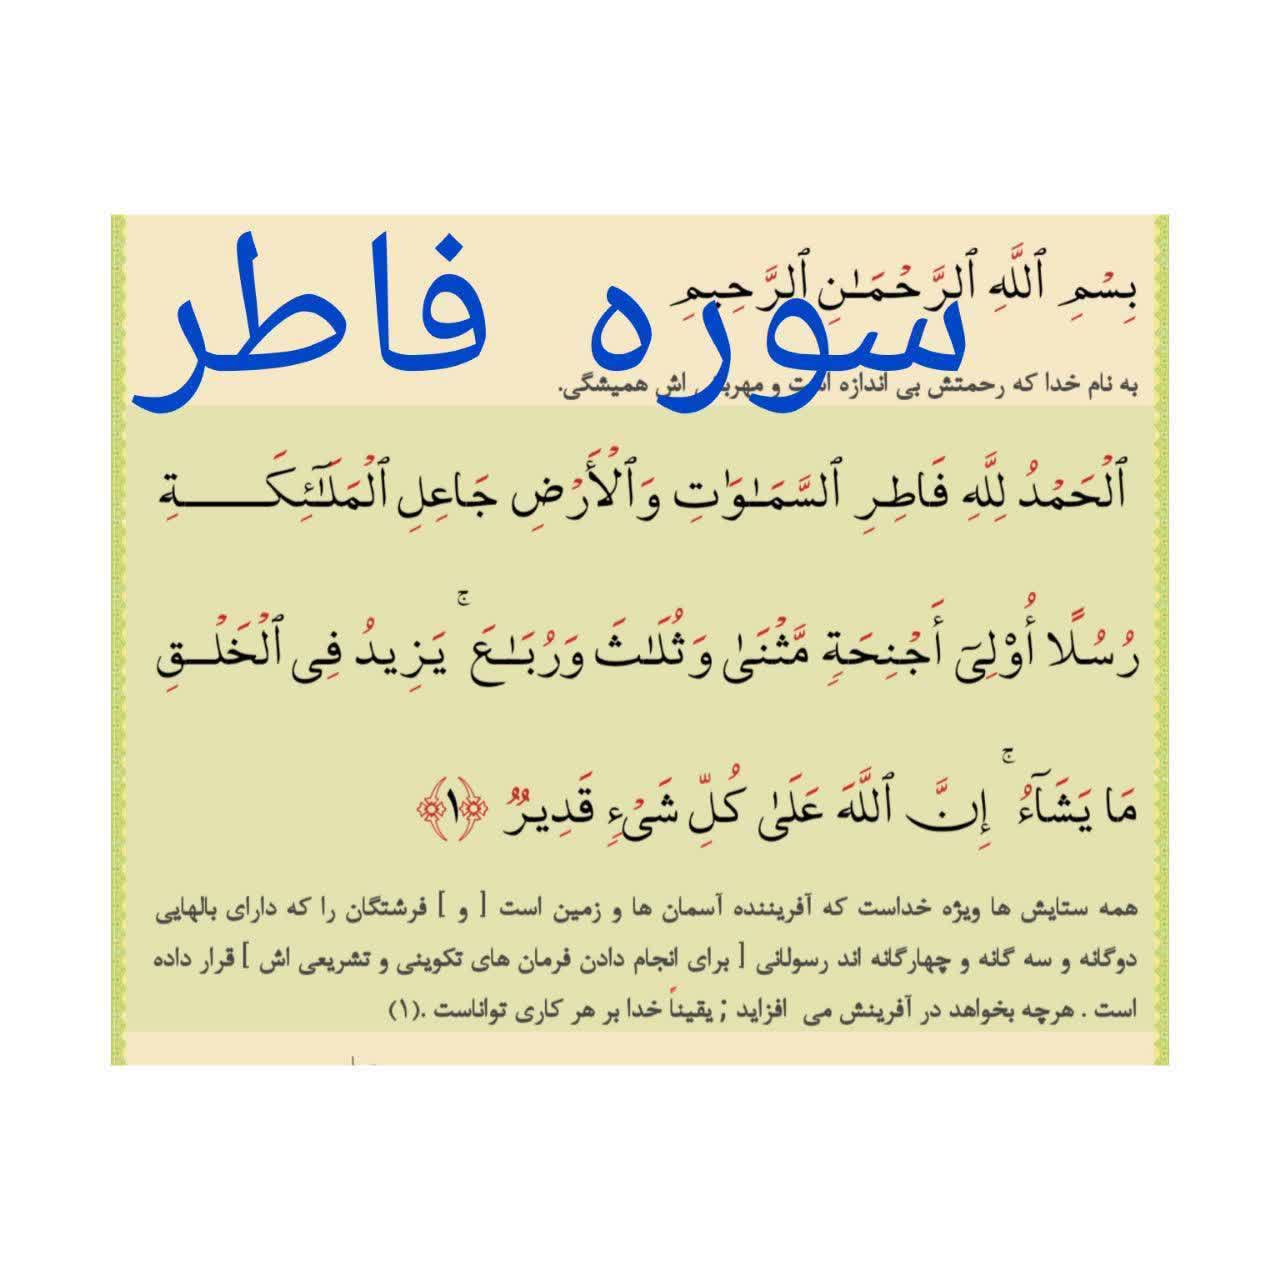 سوره فاطر
بِسْمِ ٱللَّهِ ٱلرَّحْمَـٰنِ ٱلرَّحِيمِ
به نام خدا که رحمتش بی اندازه است و مهربانی اش همیشگی.
ٱلْحَمْدُ لِلَّهِ فَاطِرِ ٱلسَّمَـٰوَٰتِ وَٱلْأَرْضِ جَاعِلِ ٱلْمَلَـٰٓئِكَـــــةِ
رُسُلًا أُوْلِىٓ أَجْنِحَةٍ مَّثْنَىٰ وَثُلَـٰثَ وَرُبَـٰعَ ۚ يَزِيدُ فِى ٱلْخَلْـقِ
مَا يَشَآءُ ۚ إِنَّ ٱللَّهَ عَلَىٰ كُلِّ شَىْءٍ قَدِيرٌ ﴿١﴾
همه ستایش ها ویژه خداست که آفریننده آسمان ها و زمین است [ و ] فرشتگان را که دارای بالهایی
دوگانه و سه گانه و چهارگانه اند رسولانی [ برای انجام دادن فرمان های تکوینی و تشریعی اش ] قرار داده
است . هرچه بخواهد در آفرینش می افزاید ; یقیناً خدا بر هر کاری تواناست .(۱)